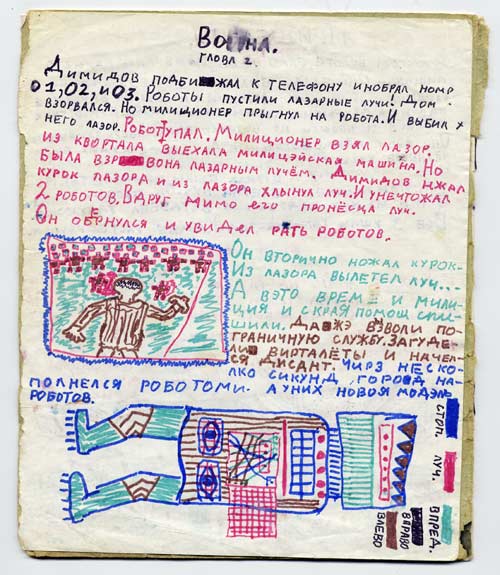 Война.
глова 2.
Димидов подбижал к телефону инобрал номр
01,02, и 03. Роботы пустили лазарные лучи! Дом
взорвался. Но милиционер прыгнул на робота. И выбил у
него лазор. Робот упал. Милиционер взял лазор.
из квортала выехала милицэйская машина. Но
была взрвона лазарным лучём. Димидов нжал
курок лазора и из лазора хлынул луч. И унечтожал
2 роботов. Вдруг мимо его пронёсца луч.
Он обернулся и увидел рать роботов.
Он вторично ножал курок-
Из лазора вылетел луч...
А вэто време и мили-
ция и скрая помощ спи-
шили. Давжэ взволи по-
граничную службу. Загуде-
ли вирталёты и начел-
ся дисант. Чирз неско-
лко сикунд, город на-
полнелся роботоми. А у них новоя модэль
роботов.
стоп.
луч.
впред.
вправо
влево